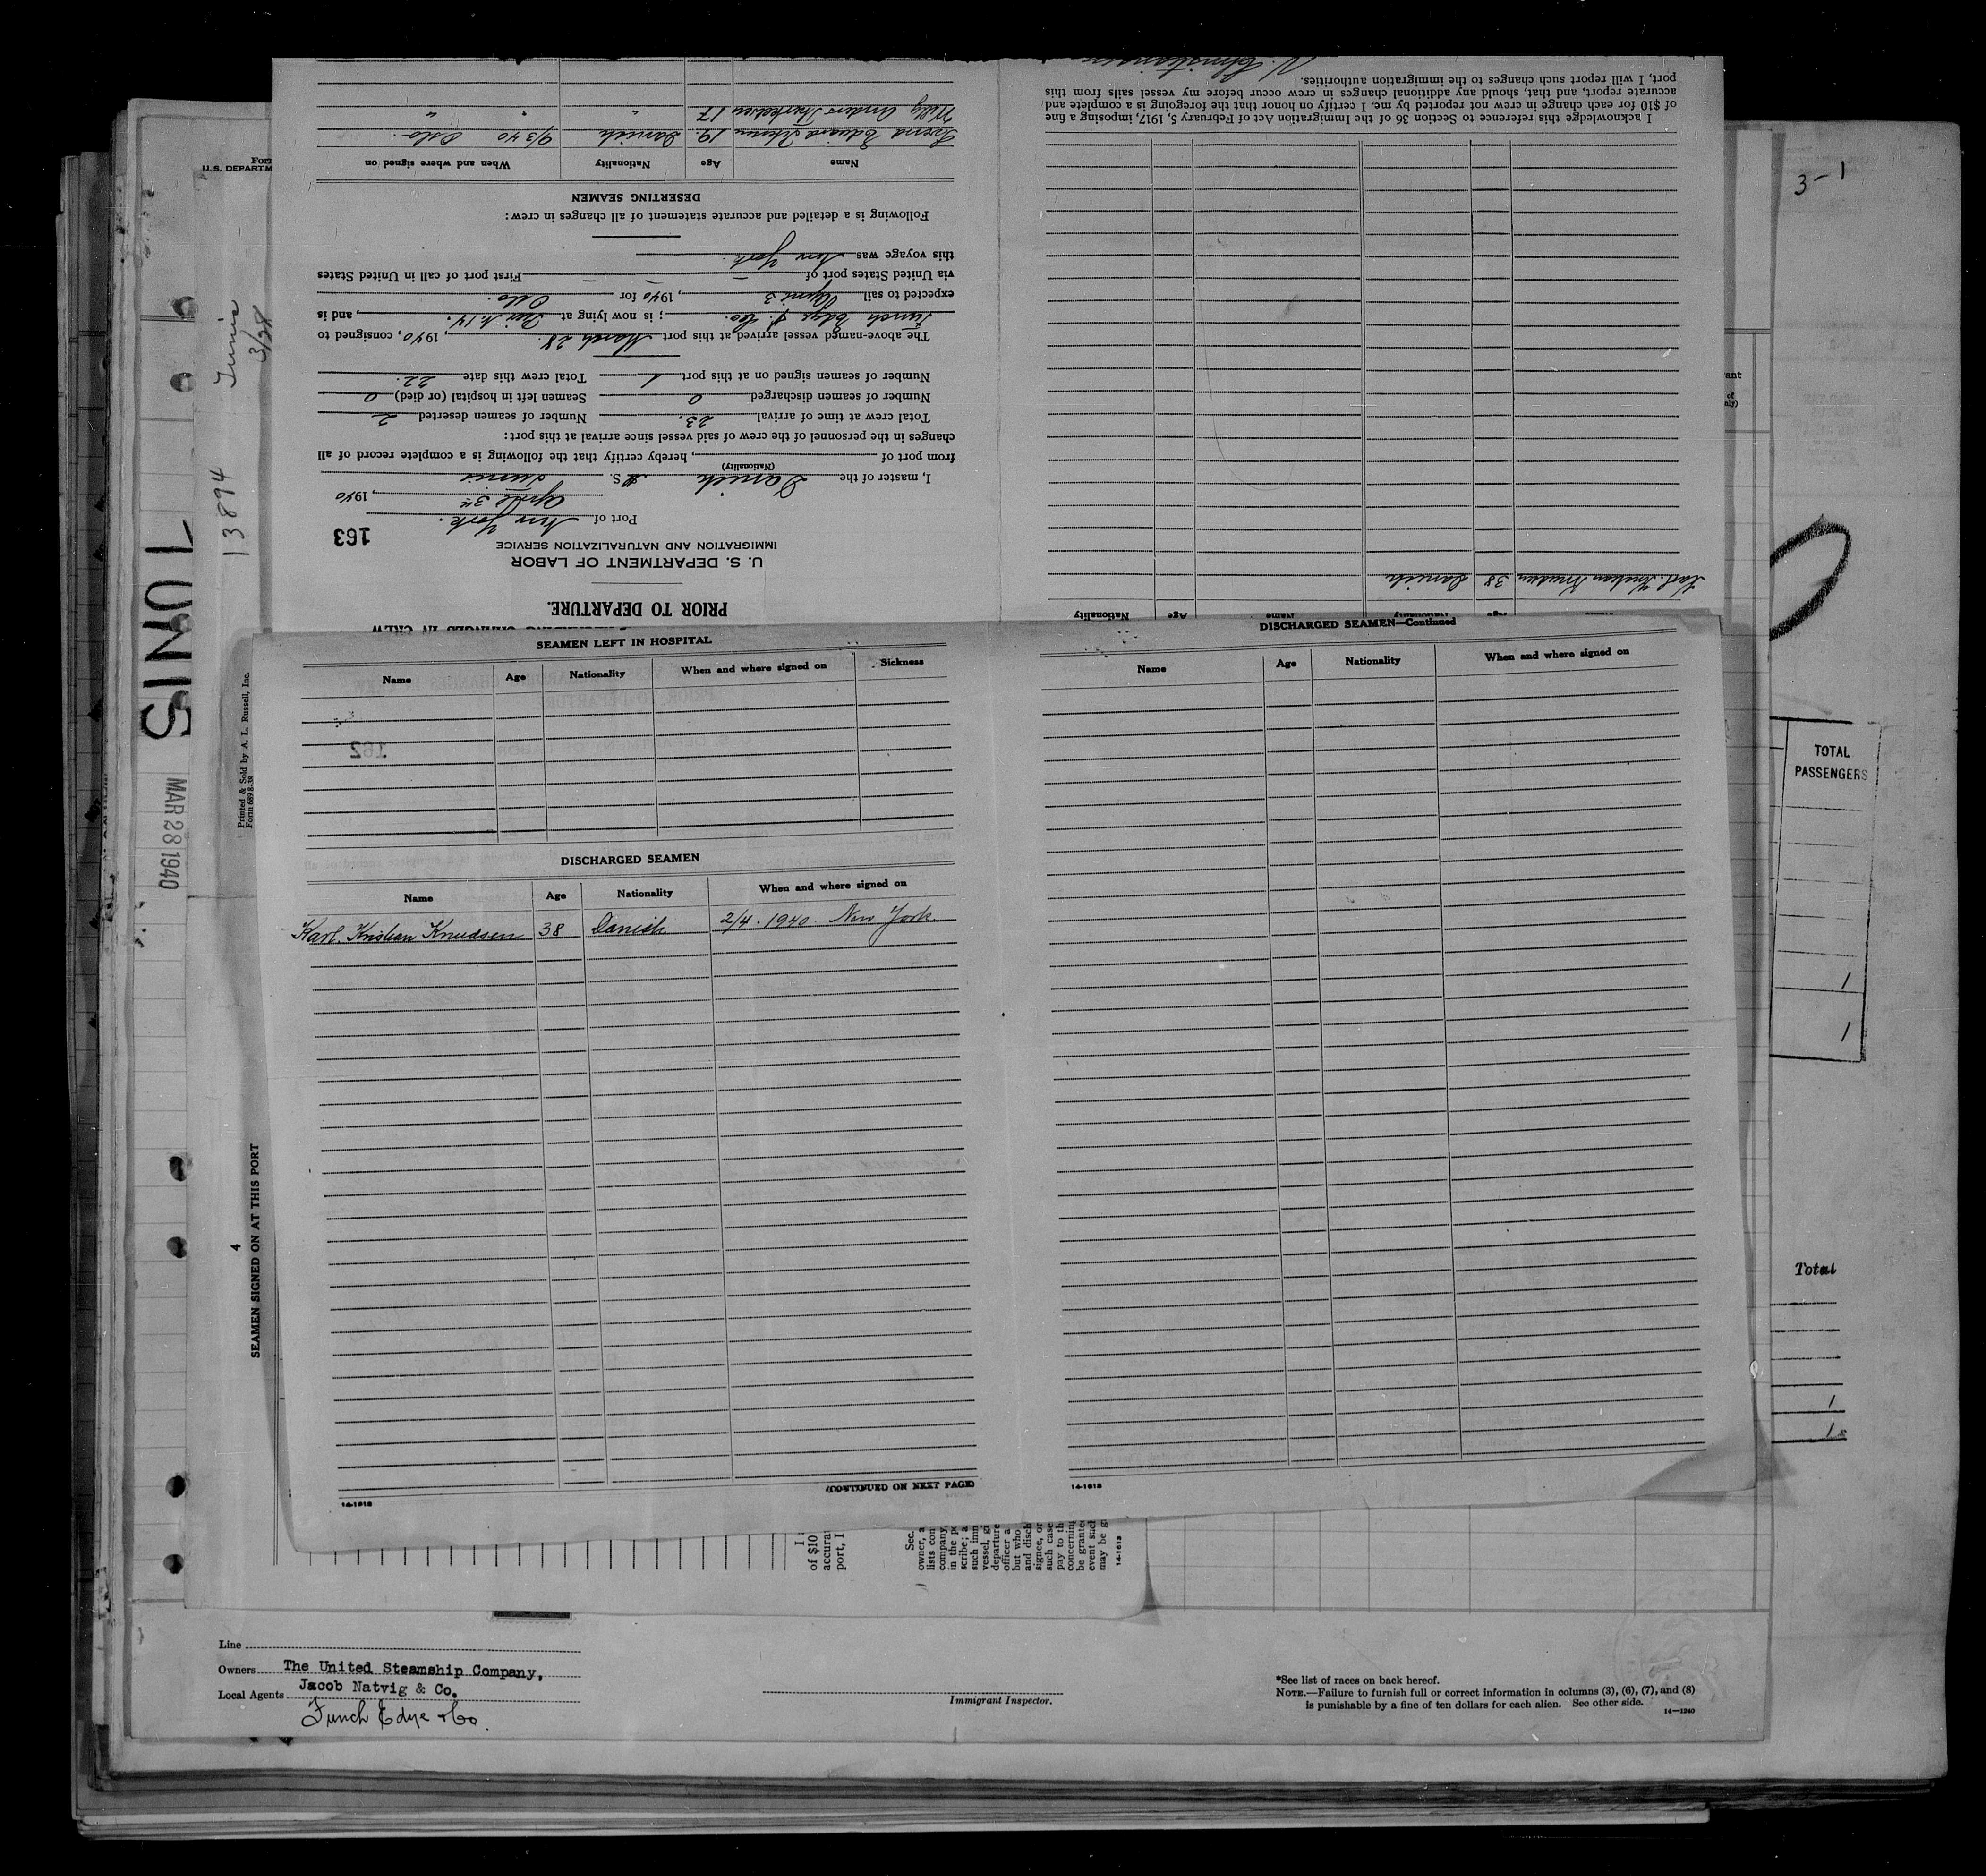 3-1
I acknowledge this reference to Section 36 of the Immigration Act of February 5, 1917, imposing a fine
of $10 for each change in crew not reported by me. I certify on honor that the foregoing is a complete and
accurate report, and that, should any additional changes in crew occur before my vessel sails from this
port, I will report such changes to the immigration authorities.
Name Age Nationality
Karl. Kristian Knudsen 38 Danish
PRIOR TO DEPARTURE.
U. S. DEPARTMENT OF LABOR
IMMIGRATION AND NATURALIZATION SERVICE
163
Port of New York.
April 3rd, 1940
I, master of the Danish S.S. Tunis
(Nationality)
from port of , hereby certify that the following is a complete record of all
changes in the personnel of the crew of said vessel since arrival at this port:
Total crew at time of arrival 23. Number of seamen deserted 2
Number of seamen discharged 0 Seamen left in hospital (or died) 0
Number of seamen signed on at this port 1 Total crew this date 22.
The above-named vessel arrived at this port March 28., 1940, consigned to
Funch Edye & Co. ; is now lying at Pier N. 14., and is
expected to sail April 3, 1940 for Oslo.
via United States port of — First port of call in United States
this voyage was New York.
Following is a detailed and accurate statement of all changes in crew:
DESERTING SEAMEN
Name Age Nationality When and where signed on
Edvard 19. Danish 9/3 40 Oslo.
Willy Anders 17 " " "
Form
U.S. DEPARTM
Tunis
3/28
13894
TUNIS
MAR 28 1940
Printed & Sold by A. L. Russell, Inc.
Form 689 8-38
4
SEAMEN SIGNED ON AT THIS PORT
SEAMEN LEFT IN HOSPITAL
Name Age Nationality When and where signed on Sickness
162
DISCHARGED SEAMEN
Name Age Nationality When and where signed on
Karl. Kristian Knudsen 38 Danish 2/4. 1940. New York.
(CONTINUED ON NEXT PAGE)
14-1618
DISCHARGED SEAMEN—Continued
Name Age Nationality When and where signed on
14-1618
TOTAL
PASSENGERS
1
1
Total
1
1
I
of $10
accura
port, I
Sec.
owner, a
lists con
company,
in the pe
scribe; a
such imm
vessel, gi
departure
officer a
but who
and disch
signee, or
such case
pay to th
concerning
be granted
event such
may be g
14-1618
Line
Owners The United Steamship Company,
Jacob Natvig & Co.
Local Agents
Funch Edye & Co.
Immigrant Inspector.
*See list of races on back hereof.
NOTE.—Failure to furnish full or correct information in columns (3), (6), (7), and (8)
is punishable by a fine of ten dollars for each alien. See other side.
14—1240